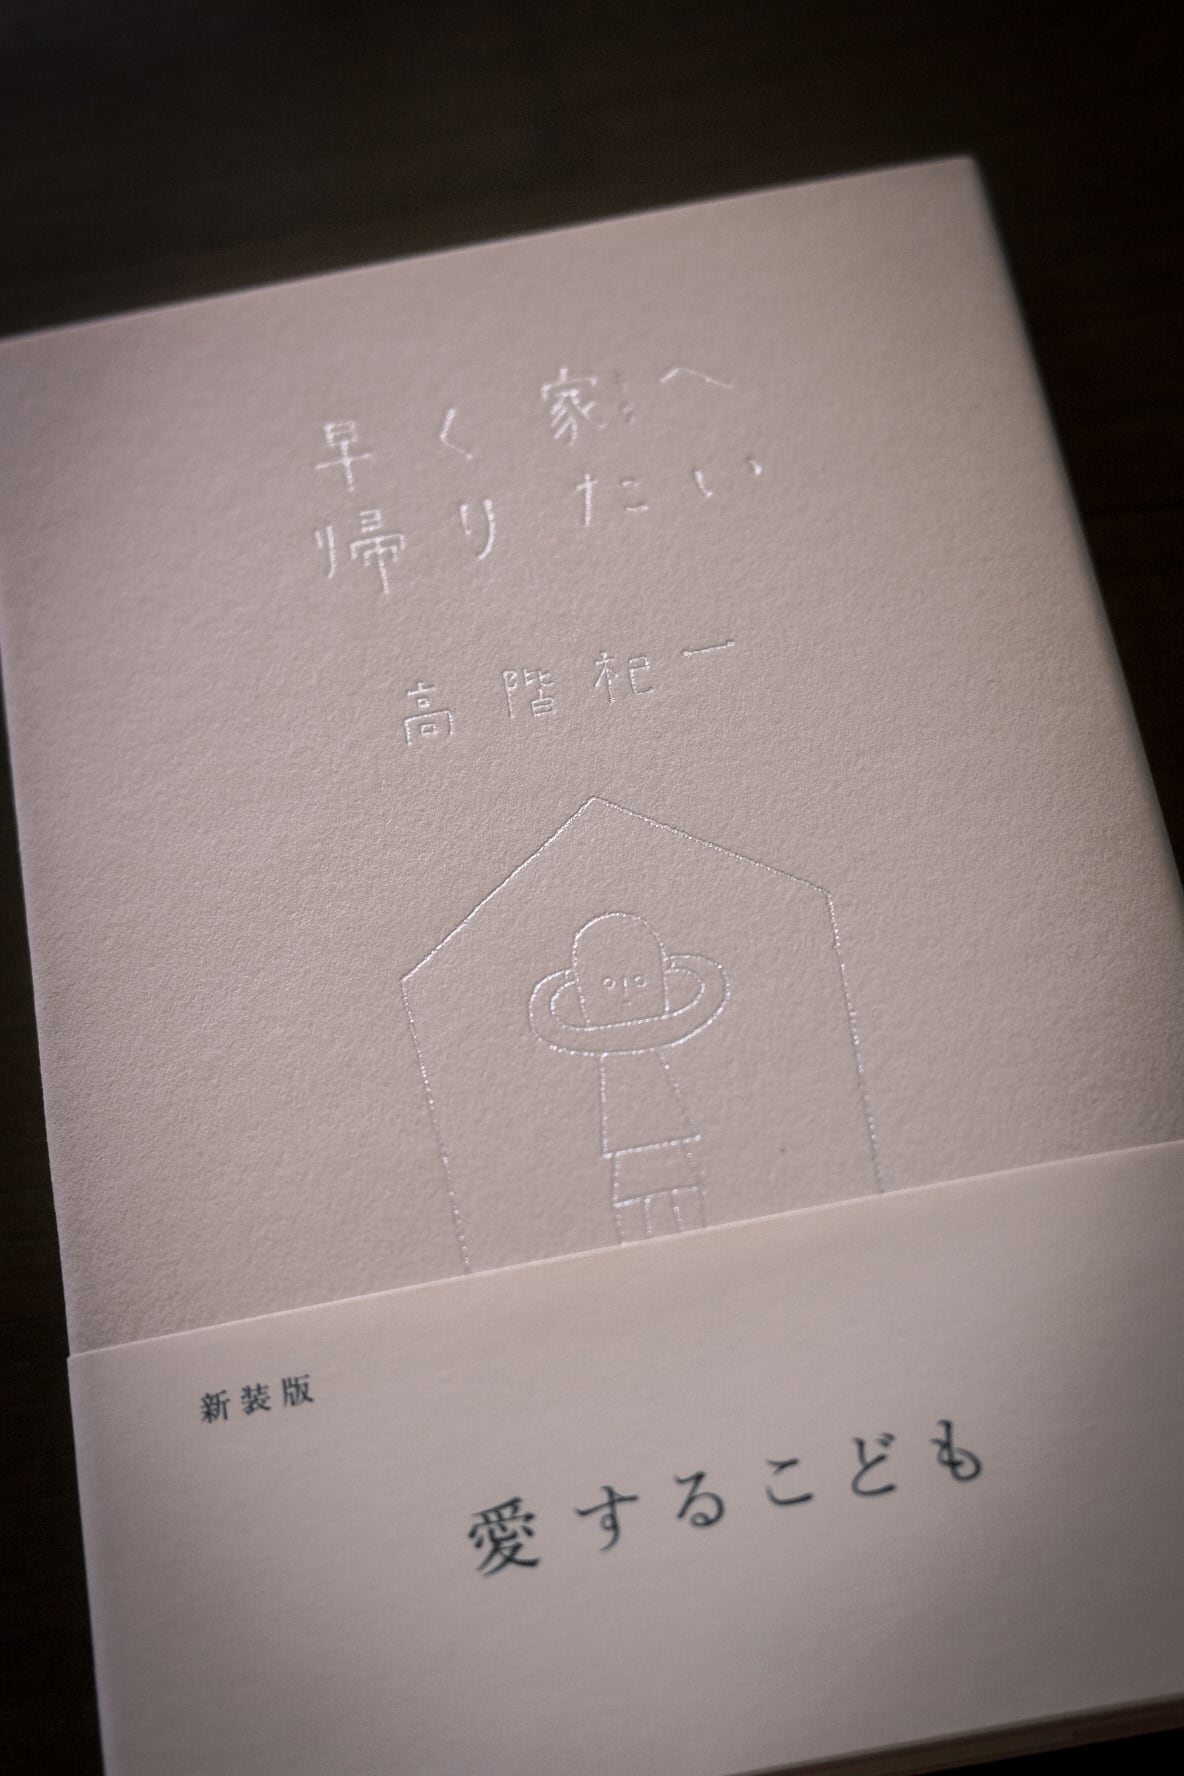 早く家へ
帰りたい
高階杞一
新装版
愛するこども